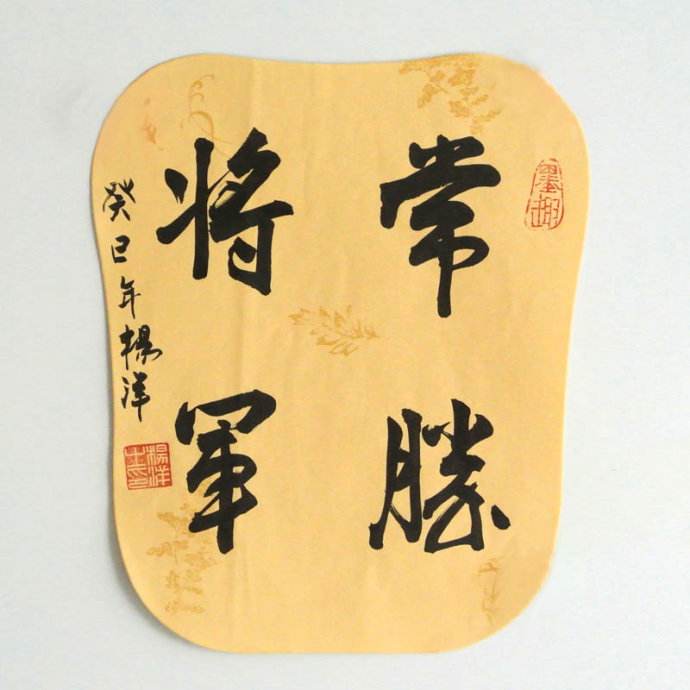 常勝
将軍
癸巳年楊洋
墨趣
楊洋之印